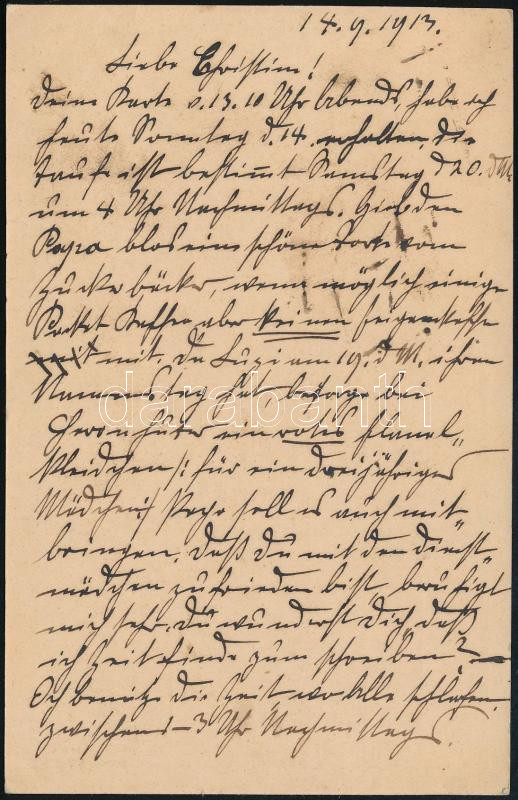 14.9.1913.
Liebe Christin!
Deine Karte v. 13. 10 Uhr Abends, habe ich
heute Sonntag d. 14. erhalten, die
Taufe ist bestimmt Samstag d 20. d M.
um 4 Uhr Nachmittags. Gieb den
Papa blos eine schöne Torte vom
Zuckerbäcker, wenn möglich einige
Packet Kaffee aber keinen Feigenkaffe
mit. Da Luzi am 19. d M. ihren
Namenstag hat besorge bei
Herrn Huber ein rotes Flanel„
Kleidchen /: für ein dreijähriges
Mädchen :/ Papa soll es auch mit
bringen. Daß Du mit den Dienst„
mädchen zufrieden bist beruhigt
mich sehr. Du wunderst Dich, daß
ich Zeit finde zum schreiben? —
Ich benütze die Zeit, wo Alle schlafen,
zwischen 1–3 Uhr Nachmittags.
darabanth